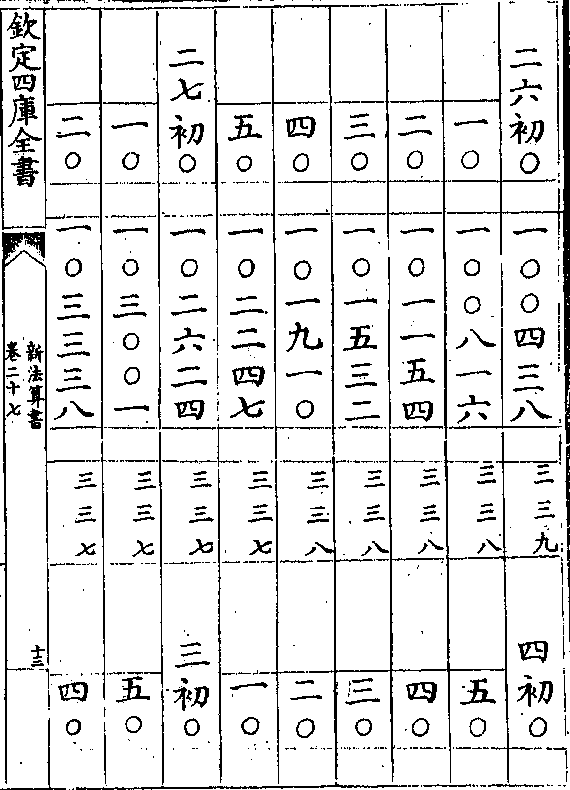 二六初〇 一〇〇四三八 三三九 四初〇
一〇 一〇〇八一六 三三八 五〇
二〇 一〇一一五四 三三八 四〇
三〇 一〇一五三二 三三八 三〇
四〇 一〇一九一〇 三三八 二〇
五〇 一〇二二四七 三三七 一〇
二七初〇 一〇二六二四 三三七 三初〇
一〇 一〇三〇〇一 三三七 五〇
二〇 一〇三三三八 三三七 四〇
欽定四庫全書
新法算書
卷二十七
十三